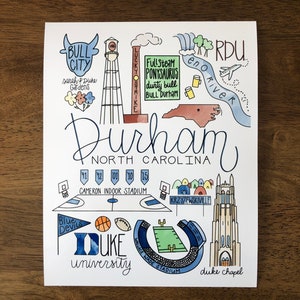 BULL
CITY
Sarah P. Duke
Gardens
LUCKY STRIKE
Fullsteam
PONYSAURUS
durty bull
Bull Durham
eno river
RDU
Durham
NORTH CAROLINA
CAMERON INDOOR STADIUM
Blue Devils
DUKE
university
duke chapel